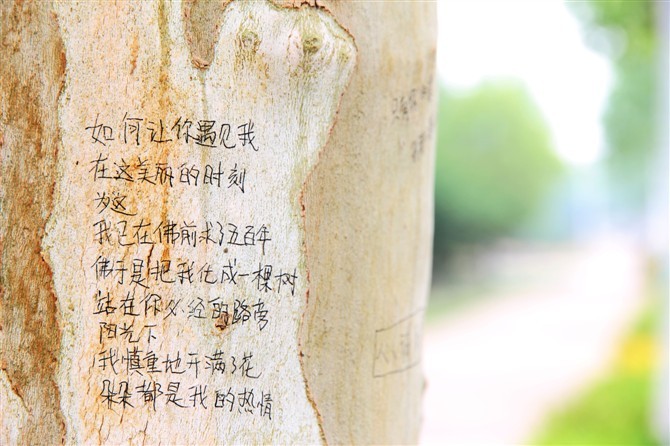 如何让你遇见我
在这美丽的时刻
为这
我已在佛前求了五百年
佛于是把我化成一棵树
站在你必经的路旁
阳光下
我慎重地开满了花
朵朵都是我的热情